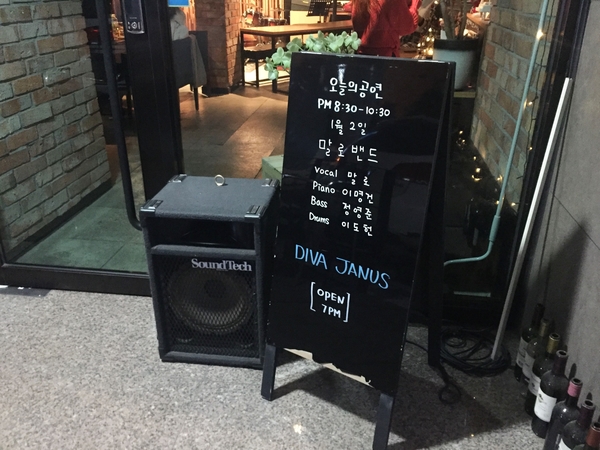 오늘의공연
PM 8:30-10:30
1월 2일
말로밴드
vocal 말로
Piano 이명건
Bass 정영준
Drums 이도헌
DIVA JANUS
[OPEN
7PM]
SoundTech